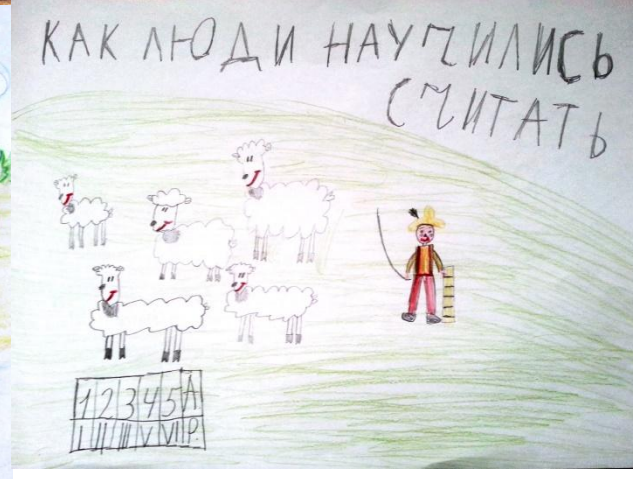 КАК ЛЮДИ НАУЧИЛИСЬ
СЧИТАТЬ
1 2 3 4 5 А
I II III V VI Р.